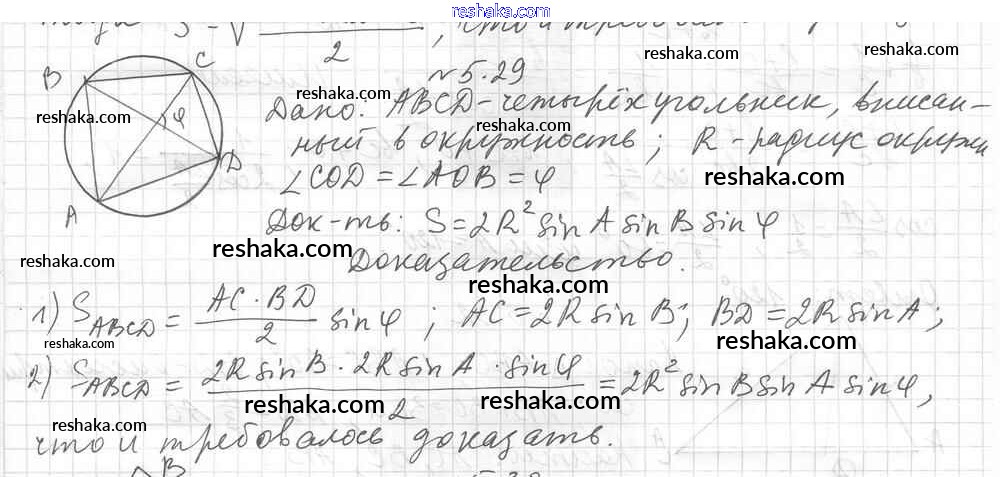 reshaka.com
S = √ 2, что и
reshaka.com
reshaka.com
№5.29
B C
reshaka.com
φ
Дано: ABCD-четырёхугольник, вписан-
reshaka.com
ный в окружность; R-радиус окружн
D
∠COD = ∠AOB = φ
reshaka.com
A
Док-ть: S = 2R² sin A sin B sin φ
reshaka.com
reshaka.com
reshaka.com
Доказательство.
reshaka.com
1) S ABCD = AC · BD / 2 sin φ ; AC = 2R sin B; BD = 2R sin A;
reshaka.com
reshaka.com
2) S ABCD = 2R sin B · 2R sin A · sin φ / 2 = 2R² sin B sin A sin φ,
reshaka.com
reshaka.com
reshaka.com
что и требовалось доказать.
B